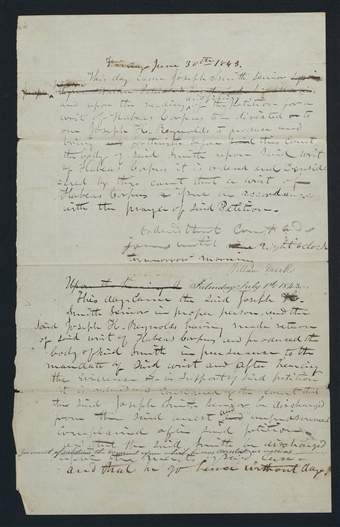 Friday June 30th 1843.
This day came Joseph Smith Senior
and upon the reading of the Petition for a
writ of Habeas Corpus directed to
one Joseph H. Reynolds to produce and
bring forthwith before this Court
the body of said Smith upon said writ
of Habeas Corpus it is ordered and consid
ered by this court that a writ of
Habeas Corpus in accordance
with the prayer of said Petition.
Ordered that Court ad
journ until eight o clock
tomorrow morning
William Marks
Saturday July 1st 1843.
This day came the said Joseph
Smith Senior in proper person, and the
said Joseph H. Reynolds having made return
of said writ of Habeas Corpus and produced the
body of said Smith in pursuance to the
mandate of said writ and after hearing
the evidence in support of said petition
it is ordered considered by the court that
the said Joseph Smith Senior be discharged
from the said arrest and imprisonment
complained of in said petition
the said Smith be discharged
upon the merits of said case
and that he go hence without day